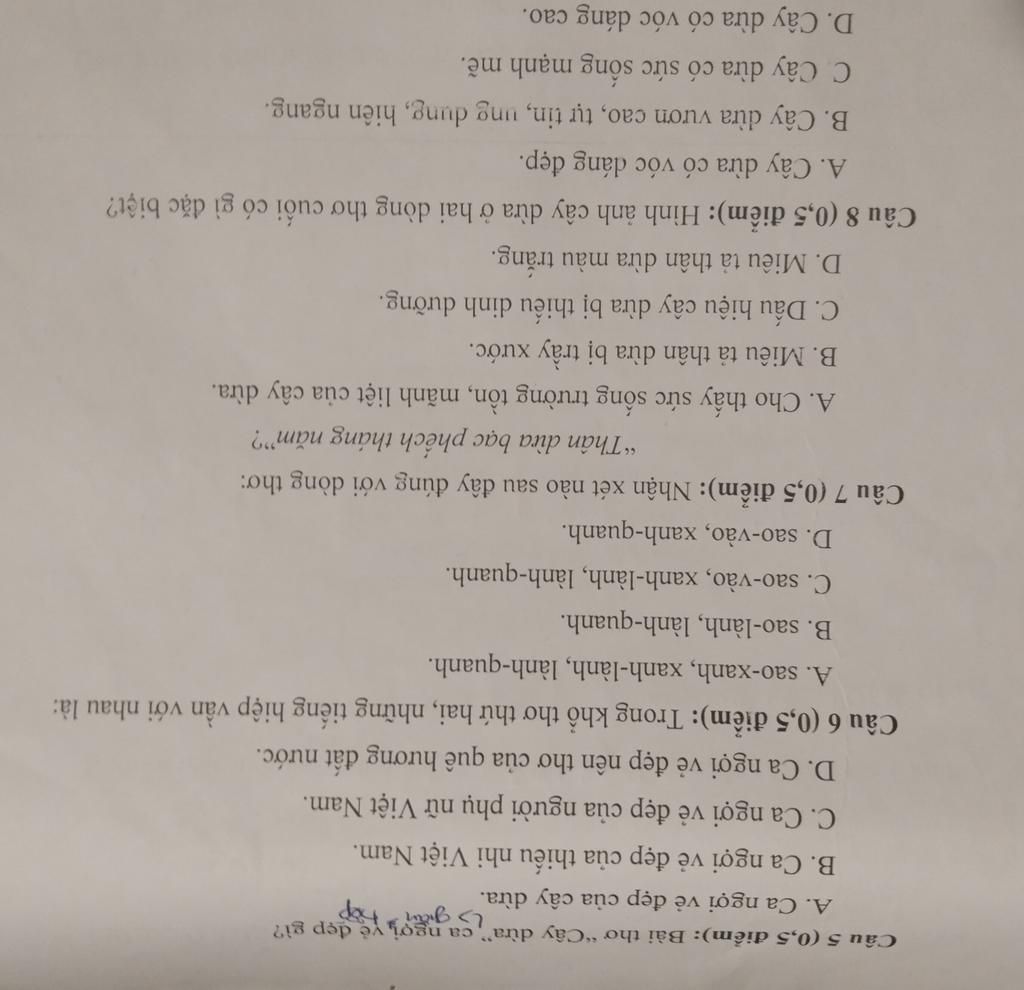 Câu 5 (0,5 điểm): Bài thơ “Cây dừa” ca ngợi vẻ đẹp gì?
↳ gián tiếp
A. Ca ngợi vẻ đẹp của cây dừa.
B. Ca ngợi vẻ đẹp của thiếu nhi Việt Nam.
C. Ca ngợi vẻ đẹp của người phụ nữ Việt Nam.
D. Ca ngợi vẻ đẹp nên thơ của quê hương đất nước.
Câu 6 (0,5 điểm): Trong khổ thơ thứ hai, những tiếng hiệp vần với nhau là:
A. sao-xanh, xanh-lành, lành-quanh.
B. sao-lành, lành-quanh.
C. sao-vào, xanh-lành, lành-quanh.
D. sao-vào, xanh-quanh.
Câu 7 (0,5 điểm): Nhận xét nào sau đây đúng với dòng thơ:
“Thân dừa bạc phếch tháng năm”?
A. Cho thấy sức sống trường tồn, mãnh liệt của cây dừa.
B. Miêu tả thân dừa bị trầy xước.
C. Dấu hiệu cây dừa bị thiếu dinh dưỡng.
D. Miêu tả thân dừa màu trắng.
Câu 8 (0,5 điểm): Hình ảnh cây dừa ở hai dòng thơ cuối có gì đặc biệt?
A. Cây dừa có vóc dáng đẹp.
B. Cây dừa vươn cao, tự tin, ung dung, hiên ngang.
C. Cây dừa có sức sống mạnh mẽ.
D. Cây dừa có vóc dáng cao.